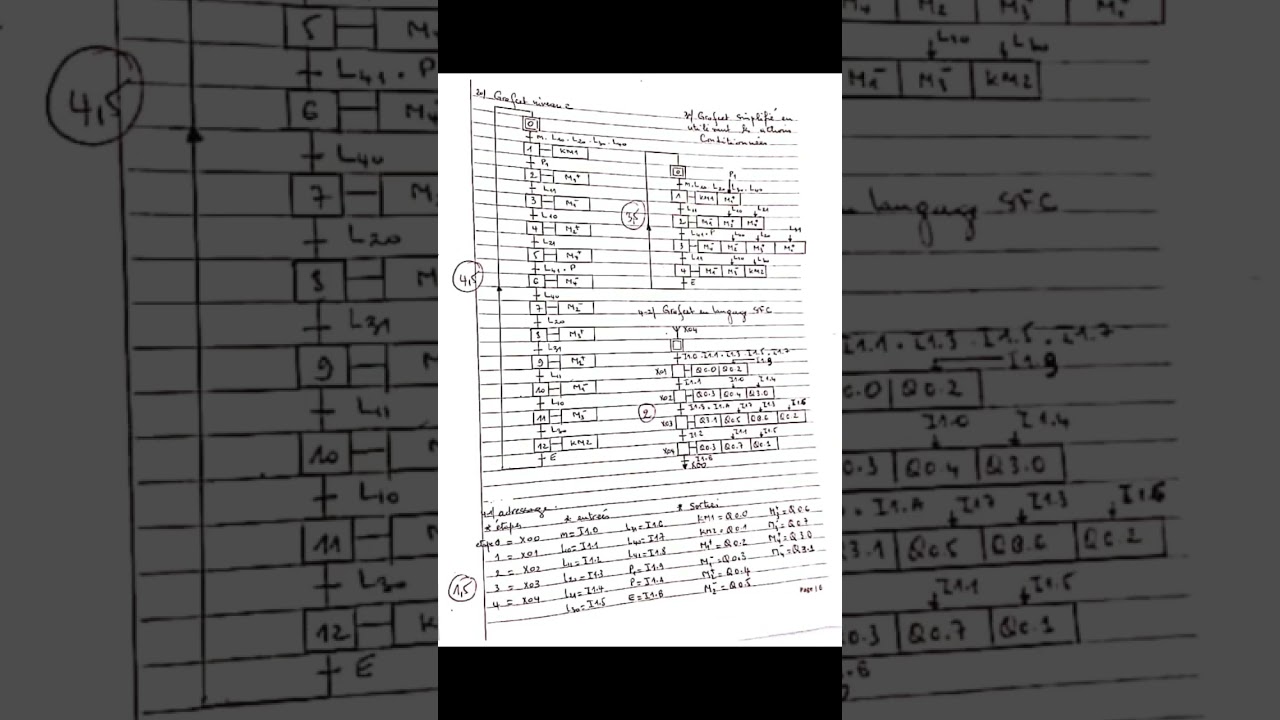 2°/ Grafcet niveau 2
0
m. L10. L20. L30. L40
1 KM1
P1
2 M1+
L11
3 M1-
L10
4 M2+
L21
5 M4+
L41. P
6 M4-
L40
7 M2-
L20
8 M3+
L31
9 M1+
L11
10 M1-
L10
11 M3-
L30
12 KM2
E
4,5
3°/ Grafcet simplifié en
utilisant les actions
Conditionnées
0
P1
m. L10. L20. L30. L40
1 KM1 M1+
L11 L10 L21
2 M1- M2+ M4+
L41. P L40 L20 L31
3 M4- M2- M3+ M1+
L11 L10 L30
4 M1- M3- KM2
E
3,5
4-2/ Grafcet en langage SFC
X04
I1.0. I1.1. I1.3. I1.5. I1.7
I1.9
X01 Q0.0 Q0.2
I1.1 I1.0 I1.4
X02 Q0.3 Q0.4 Q3.0
I1.3. I1.A I1.7 I1.3 I1.6
X03 Q3.1 Q0.5 Q0.6 Q0.2
I1.2 I1.1 I1.5
X04 Q0.3 Q0.7 Q0.1
I1.6
X00
2
4-1/ adressage:
* étapes * entrées * Sorties
etape 0 = X00 m = I1.0 L31 = I1.6 KM1 = Q0.0 M3+ = Q0.6
1 = X01 L10 = I1.1 L40 = I1.7 KM2 = Q0.1 M3- = Q0.7
2 = X02 L11 = I1.2 L41 = I1.8 M1+ = Q0.2 M4+ = Q3.0
3 = X03 L20 = I1.3 P1 = I1.9 M1- = Q0.3 M4- = Q3.1
4 = X04 L21 = I1.4 P = I1.A M2+ = Q0.4
L30 = I1.5 E = I1.B M2- = Q0.5
1,5
Page | 6